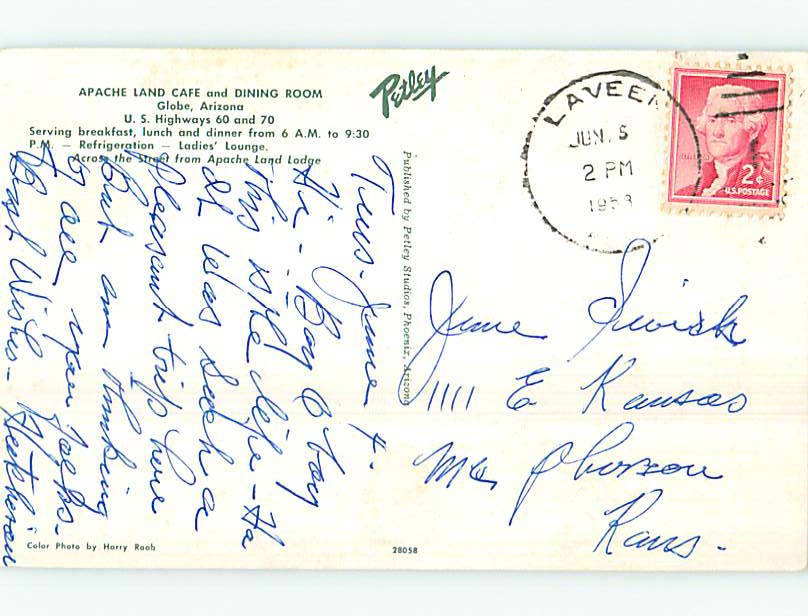 APACHE LAND CAFE and DINING ROOM
Globe, Arizona
U. S. Highways 60 and 70
Serving breakfast, lunch and dinner from 6 A.M. to 9:30
P.M. — Refrigeration — Ladies' Lounge.
Across the Street from Apache Land Lodge
Petley
LAVEEN
JUN. 5
2 PM
2¢
U.S. POSTAGE
Published by Petley Studios, Phoenix, Arizona
Tues. June 4.
Hi - Boy O boy
this is the life - Ha
It was such a
pleasant trip here
But am thinking
of all you folks.
Best Wishes -
June
1111 E Kansas
Mc Pherson
Kans.
Color Photo by Harry Raab
28058